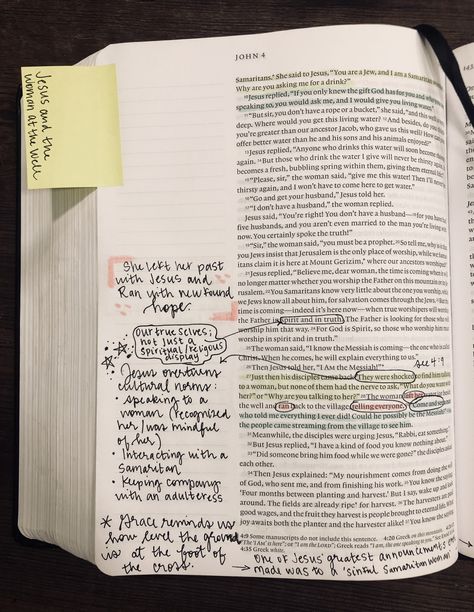 JOHN 4
Jesus and the
woman at the well
Samaritans.* She said to Jesus, "You are a Jew, and I am a Samaritan
Why are you asking me for a drink?"
10Jesus replied, "If you only knew the gift God has for you and
speaking to, you would ask me, and I would give you living water."
11"But sir, you don't have a rope or a bucket," she said, "and this well
deep. Where would you get this living water? 12And besides, do you
you're greater than our ancestor Jacob, who gave us this well? How can you
offer better water than he and his sons and his animals enjoyed?"
13Jesus replied, "Anyone who drinks this water will soon become thirsty
again. 14But those who drink the water I give will never be thirsty
becomes a fresh, bubbling spring within them, giving them eternal life."
15"Please, sir," the woman said, "give me this water! Then I'll never be
thirsty again, and I won't have to come here to get water."
16"Go and get your husband," Jesus told her.
17"I don't have a husband," the woman replied.
Jesus said, "You're right! You don't have a husband—18for you have had
five husbands, and you aren't even married to the man you're living with
now. You certainly spoke the truth!"
19"Sir," the woman said, "you must be a prophet. 20So tell me, why is it that
you Jews insist that Jerusalem is the only place of worship, while we Samar-
itans claim it is here at Mount Gerizim,* where our ancestors worshiped?"
21Jesus replied, "Believe me, dear woman, the time is coming when it will
no longer matter whether you worship the Father on this mountain or in Je-
rusalem. 22You Samaritans know very little about the one you worship, while
we Jews know all about him, for salvation comes through the Jews. 23But the
time is coming—indeed it's here now—when true worshipers will worship
the Father in spirit and in truth. The Father is looking for those who will
worship him that way. 24For God is Spirit, so those who worship him must
worship in spirit and in truth."
25The woman said, "I know the Messiah is coming—the one who is called
Christ. When he comes, he will explain everything to us."
26Then Jesus told her, "I AM the Messiah!"*
see 4:9
27Just then his disciples came back. They were shocked to find him talking
to a woman, but none of them had the nerve to ask, "What do you want with
her?" or "Why are you talking to her?" 28The woman left her water jar beside
the well and ran back to the village, telling everyone, 29"Come and see a man
who told me everything I ever did! Could he possibly be the Messiah?" 30So
the people came streaming from the village to see him.
31Meanwhile, the disciples were urging Jesus, "Rabbi, eat something."
32But Jesus replied, "I have a kind of food you know nothing about."
33"Did someone bring him food while we were gone?" the disciples asked
each other.
34Then Jesus explained: "My nourishment comes from doing the will
of God, who sent me, and from finishing his work. 35You know the saying,
'Four months between planting and harvest.' But I say, wake up and look
around. The fields are already ripe* for harvest. 36The harvesters are paid
good wages, and the fruit they harvest is people brought to eternal life. What
joy awaits both the planter and the harvester alike! 37You know the saying,
4:9 Some manuscripts do not include this sentence. 4:20 Greek on this mountain.
"The 'I Am' is here"; or "I am the LORD"; Greek reads "I am, the one speaking to you." See Exod
4:35 Greek white.
She left her past
with Jesus and
Ran with new found
hope.
Our true selves;
not just a
spiritual/religious
display
Jesus overturns
cultural norms:
• speaking to a
woman (recognized
her/was mindful
of her)
• Interacting with a
Samaritan
• Keeping company
with an adulteress
* Grace reminds us
how level the ground
is at the foot of
the cross.
→ One of Jesus' greatest announcements
made was to a 'sinful Samaritan woman'